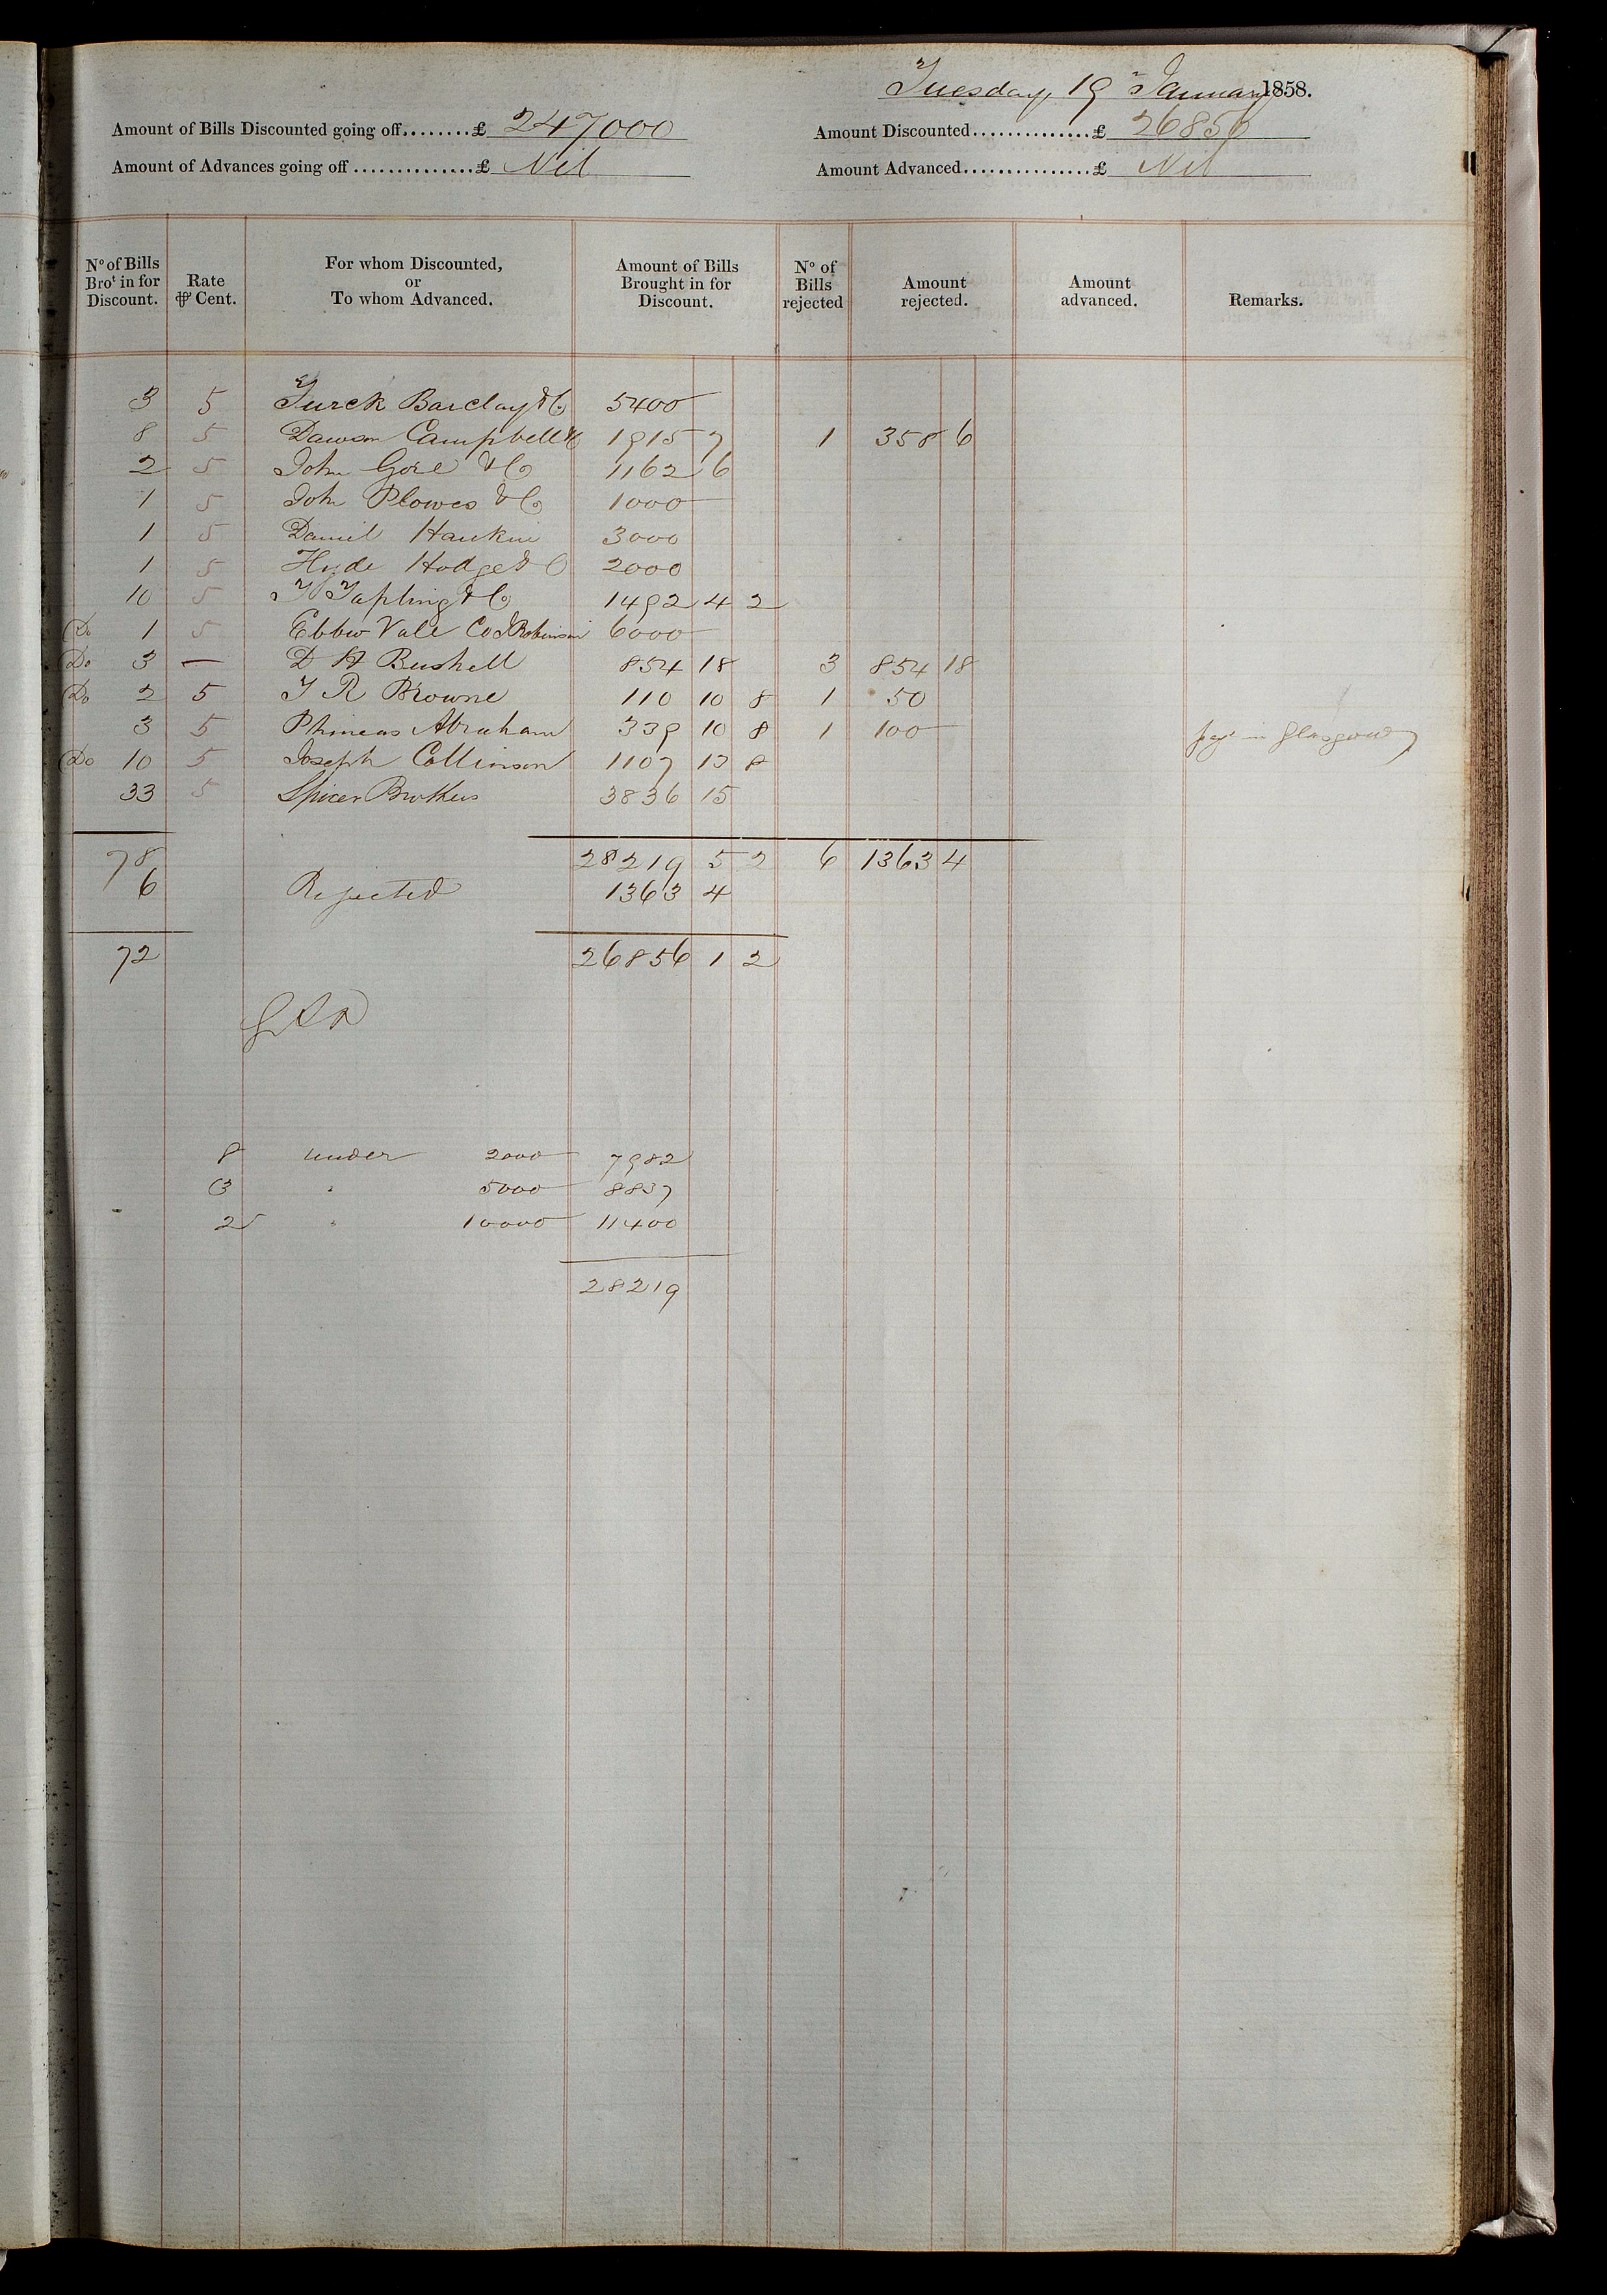 Tuesday 19 January 1858.
Amount of Bills Discounted going off........£ 247000
Amount Discounted..............£ 26856
Amount of Advances going off...............£ Nil
Amount Advanced................£ Nil
No of Bills Brot in for Discount. Rate ⅌ Cent. For whom Discounted, or To whom Advanced. Amount of Bills Brought in for Discount. No of Bills rejected Amount rejected. Amount advanced. Remarks.
3 5 Barclay & Co 5400
8 5 Dawson Campbell & 1915 7 1 358 6
2 5 John Gore & Co 1162 6
1 5 John Plowes & Co 1000
1 5 Daniel 3000
1 5 Hyde Hodge & Co 2000
10 5 T Tapling & Co 1492 4 2
Do 1 5 Ebbw Vale Co J Robinson 6000
Do 3 — D H Bushell 854 18 3 854 18
Do 2 5 T R Browne 110 10 8 1 50
3 5 Phineas Abraham 339 10 8 1 100 in Glasgow
Do 10 5 Joseph Collinson 1107 13 8
33 5 Spicer Brothers 3836 15
78 28219 5 2 6 1363 4
6 Rejected 1363 4
72 26856 1 2
8 under 2000 7982
3 " 5000 8837
2 " 10000 11400
28219